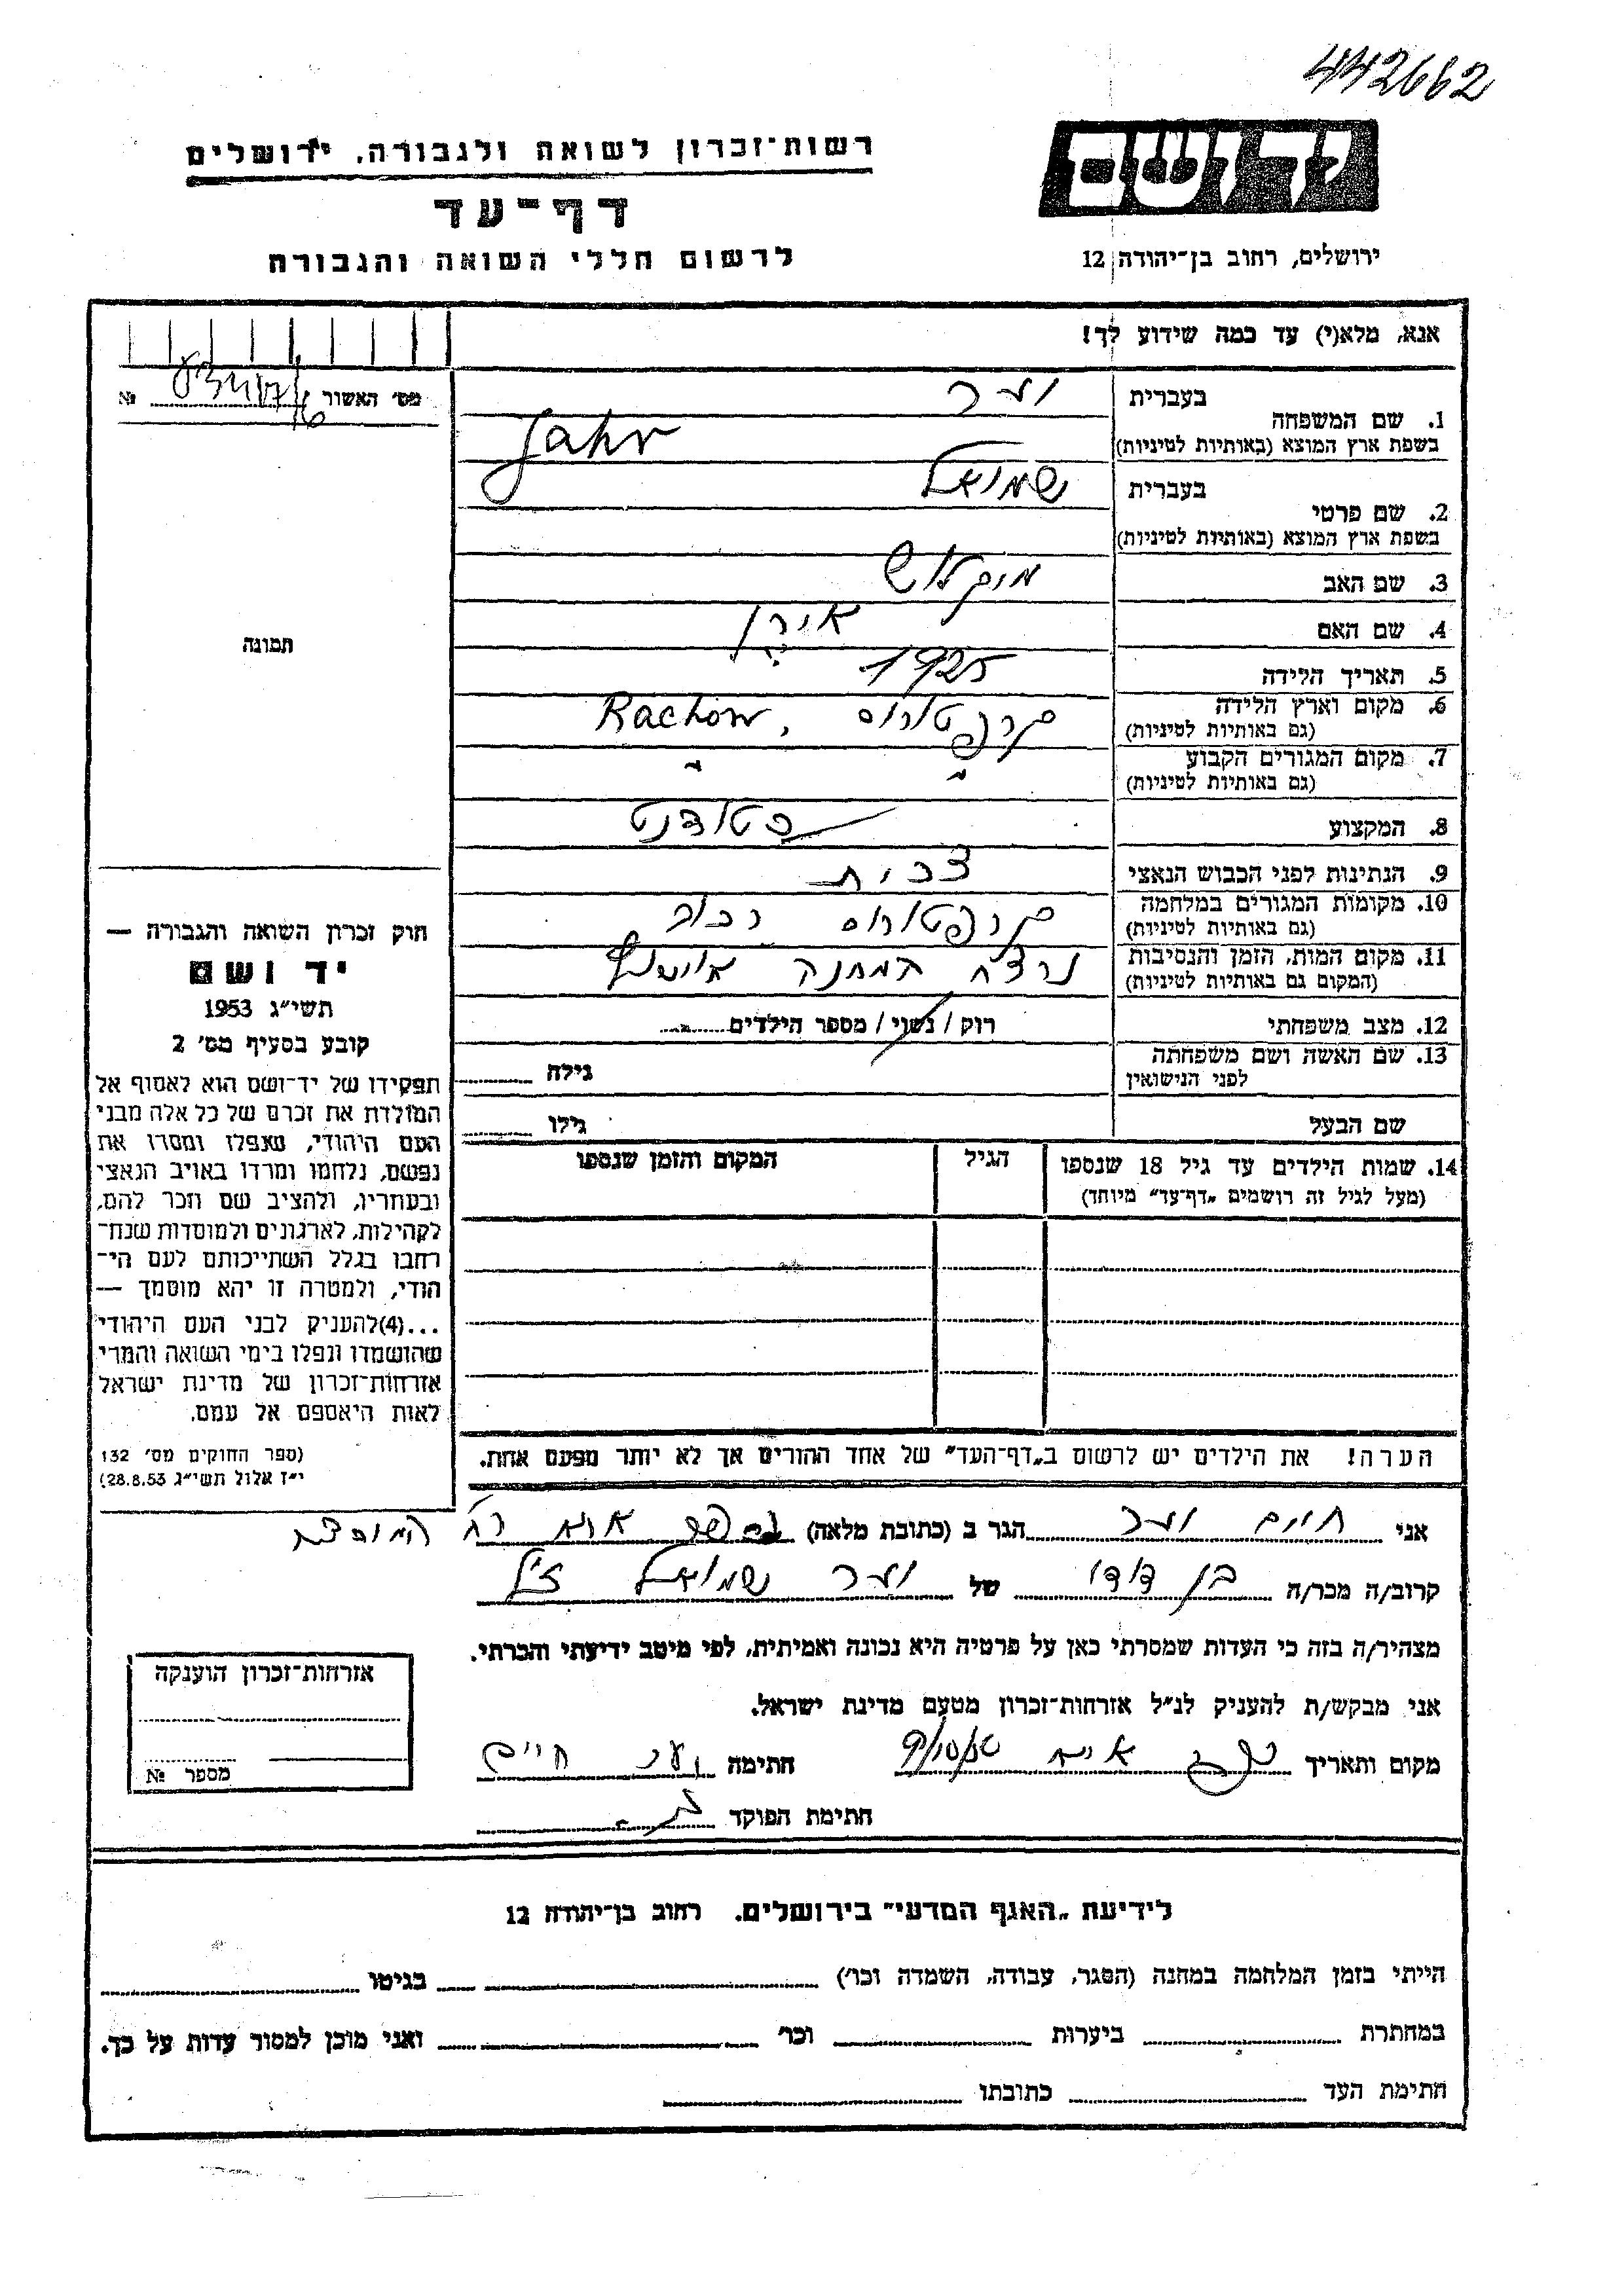 442662
רשות־זכרון לשואה ולגבורה, ירושלים
דף־עד
לרשום חללי השואה והגבורה
יד ושם
ירושלים, רחוב בן־יהודה 12
אנא, מלא(י) עד כמה שידוע לך!
מס' האשור №
1. שם המשפחה
בעברית
בשפת ארץ המוצא (באותיות לטיניות) Jahr
2. שם פרטי
בעברית שמואל
בשפת ארץ המוצא (באותיות לטיניות)
3. שם האב מיקלוש
4. שם האם אירן
5. תאריך הלידה 1925
6. מקום וארץ הלידה קרפטורוס, Rachow
(גם באותיות לטיניות)
7. מקום המגורים הקבוע " "
(גם באותיות לטיניות)
8. המקצוע סטודנט
9. הנתינות לפני הכבוש הנאצי צכית
10. מקומות המגורים במלחמה קרפטורוס רכוב
(גם באותיות לטיניות)
11. מקום המות, הזמן והנסיבות נרצח המחנה
(המקום גם באותיות לטיניות)
12. מצב משפחתי רוק / נשוי / מספר הילדים
13. שם האשה ושם משפחתה
לפני הנישואין גילה
שם הבעל גילו
14. שמות הילדים עד גיל 18 שנספו
(מעל לגיל זה רושמים „דף־עד" מיוחד)
הגיל
המקום והזמן שנספו
הערה! את הילדים יש לרשום ב„דף־העד" של אחד ההורים אך לא יותר מפעם אחת.
תמונה
חוק זכרון השואה והגבורה —
יד ושם
תשי"ג 1953
קובע בסעיף מס' 2
תפקידו של יד־ושם הוא לאסוף אל
המולדת את זכרם של כל אלה מבני
העם היהודי, שנפלו ומסרו את
נפשם, נלחמו ומרדו באויב הנאצי
ובעוזריו, ולהציב שם וזכר להם,
לקהילות, לארגונים ולמוסדות שנח־
רחבו בגלל השתייכותם לעם הי־
הודי, ולמטרה זו יהא מוסמך —
...(4)להעניק לבני העם היהודי
שהושמדו ונפלו בימי השואה והמרי
אזרחות־זכרון של מדינת ישראל
לאות היאספם אל עמם.
(ספר החוקים מס' 132
י"ז אלול תשי"ג 28.8.53)
אני חיים הגר ב (כתובת מלאה)
קרוב/ה מכר/ה בן דודו של שמואל ז"ל
מצהיר/ה בזה כי העדות שמסרתי כאן על פרטיה היא נכונה ואמיתית, לפי מיטב ידיעתי והכרתי.
אני מבקש/ת להעניק לנ"ל אזרחות־זכרון מטעם מדינת ישראל.
מקום ותאריך חתימה חיים
חתימת הפוקד
אזרחות־זכרון הוענקה
מספר №
לידיעת „האגף המדעי" בירושלים. רחוב בן־יהודה 12
הייתי בזמן המלחמה במחנה (הסגר, עבודה, השמדה וכו') בגיטו
במחתרת ביערות וכו' ואני מוכן למסור עדות על כך.
חתימת העד כתובתו